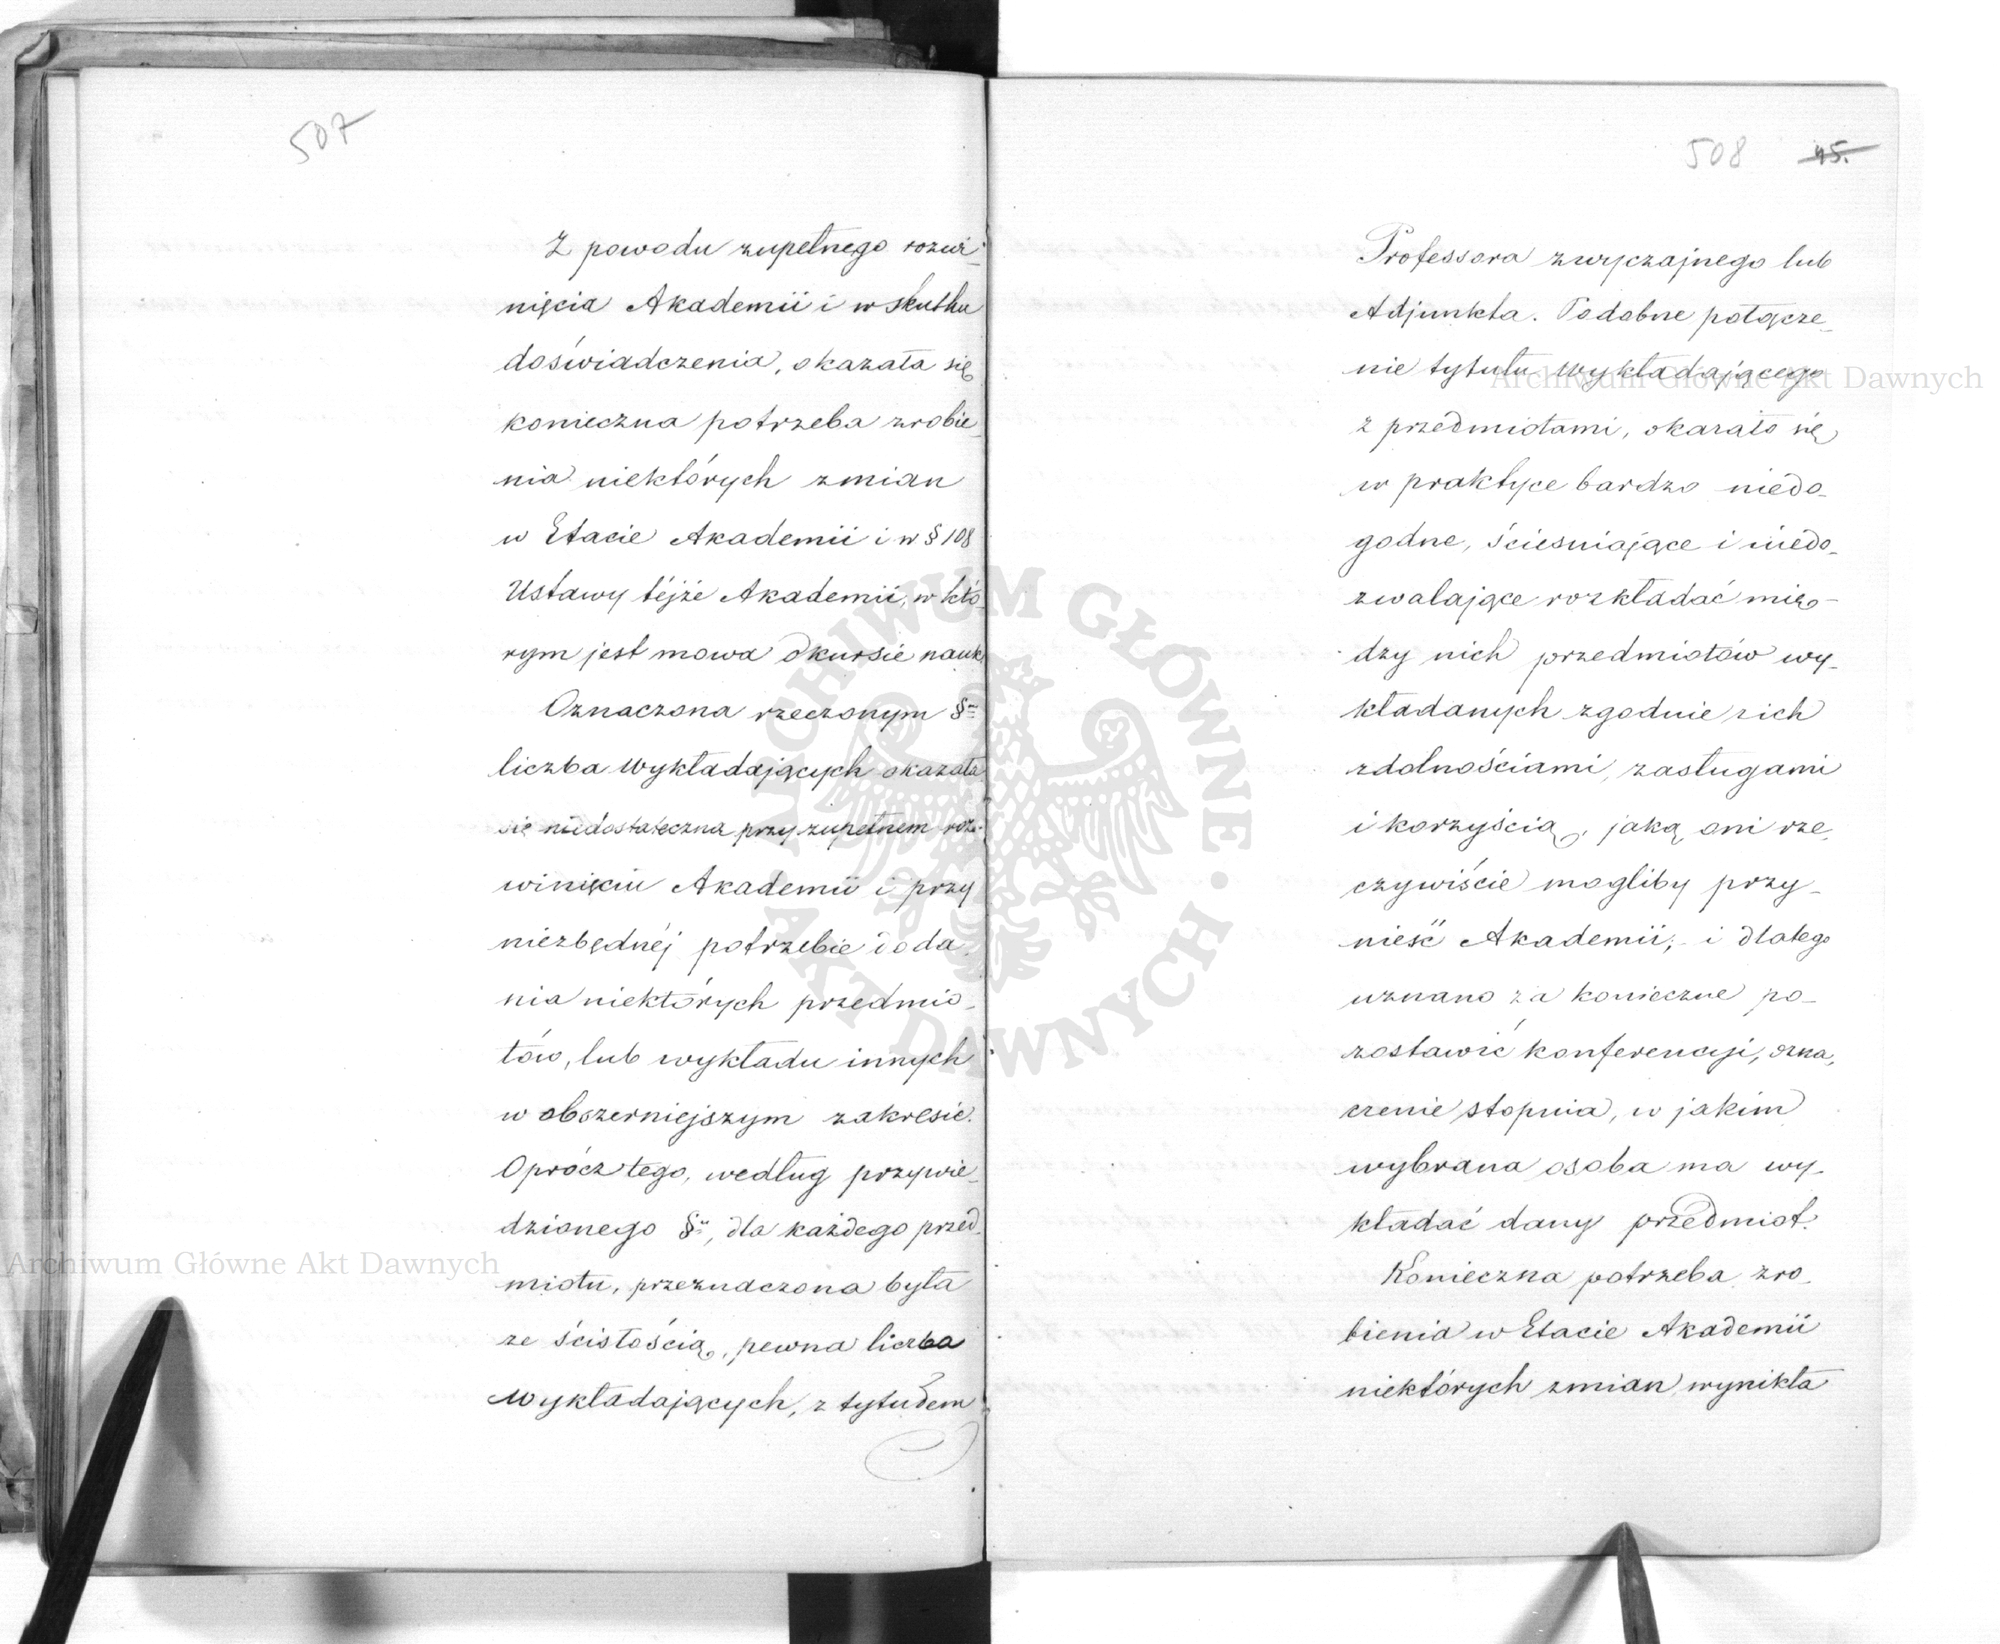 507
Z powodu zupełnego rozwi-
nięcia Akademii i w skutku
doświadczenia, okazała się
konieczna potrzeba zrobie-
nia niektórych zmian
w Etacie Akademii i w § 108
Ustawy téjże Akademii, w któ-
rym jest mowa o kursie nauk
Oznaczona rzeczonym §m
liczba Wykładających okazała
się niedostateczna przy zupełnem roz-
winięciu Akademii i przy
niezbędnéj potrzebie doda-
nia niektórych przedmio-
tów, lub wykładu innych
w obszerniejszym zakresie.
Oprócz tego, według przywie-
dzionego §u, dla każdego przed-
miotu, przeznaczona była
ze ścisłością, pewna liczba
Wykładających, z tytułem
508 45.
Professora zwyczajnego lub
Adjunkta. Podobne połącze-
nie tytułu Wykładającego
z przedmiotami, okazało się
w praktyce bardzo niedo-
godne, ścieśniające i niedo-
zwalające rozkładać mię-
dzy nich przedmiotów wy-
kładanych zgodnie z ich
zdolnościami, zasługami
i korzyścią, jaką oni rze-
czywiście mogliby przy-
nieść Akademii; i dlatego
uznano za konieczne po-
zostawić konferencyi, ozna-
czenie stopnia, w jakim
wybrana osoba ma wy-
kładać dany przedmiot.
Konieczna potrzeba zro-
bienia w Etacie Akademii
niektórych zmian wynikła
Archiwum Główne Akt Dawnych
Archiwum Główne Akt Dawnych
ARCHIWUM GŁÓWNE · AKT DAWNYCH ·